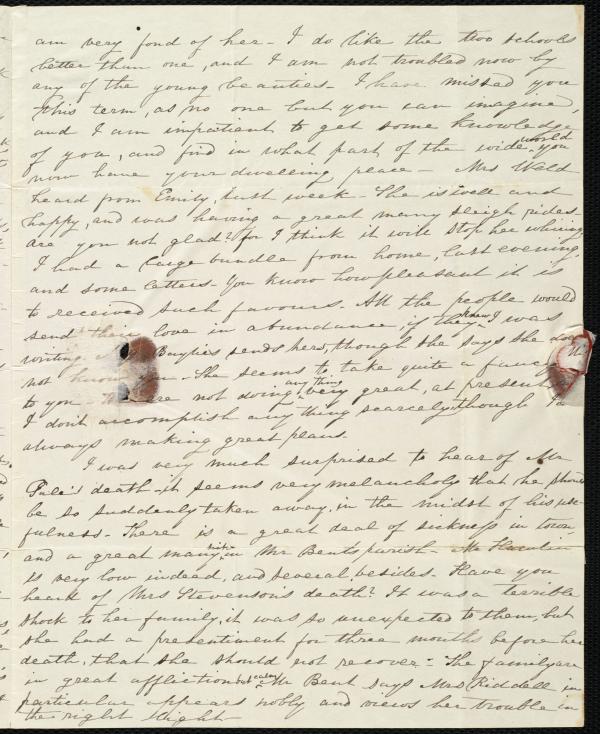 am very fond of her - I do like the two schools
better than one, and I am not troubled now by
any of the young beauties - I have missed you
this term, as no one but you can imagine,
and I am impatient to get some knowledge
of you, and find in what part of the wide world you
now have your dwelling peace - Mrs Weld
heard from Emily, last week - She is well and
happy, and was having a great many sleigh rides -
Are you not glad? for I think it will stop her whining
I had a large bundle from home, last evening,
and some letters - You know how pleasant it is
to received such favours. All the people would
send their love in abundance, if they knew I was
writing. Baylies sends hers, though she says she does
not know you - She seems to take quite a fancy
to you - are not doing anything very great, at present
I don't accomplish any thing scarcely though
always making great plans.
I was very much surprised to hear of Mr
death, it seems very melancholy that he should
be so suddenly taken away, in the midst of his use-
fulness - There is a great deal of sickness in town
and a great many sick in Mr Bent's parish - Mr
is very low indeed, and several besides. Have you
heard of Mrs Stevenson's death? It was a terrible
shock to her family, it was so unexpected to them, but
she had a presentiment for three months before her
death, that she should not recover - The family are
in great affliction but calm Mr Bent says Mrs Riddell in
particular appears nobly and views her trouble in
the right light -